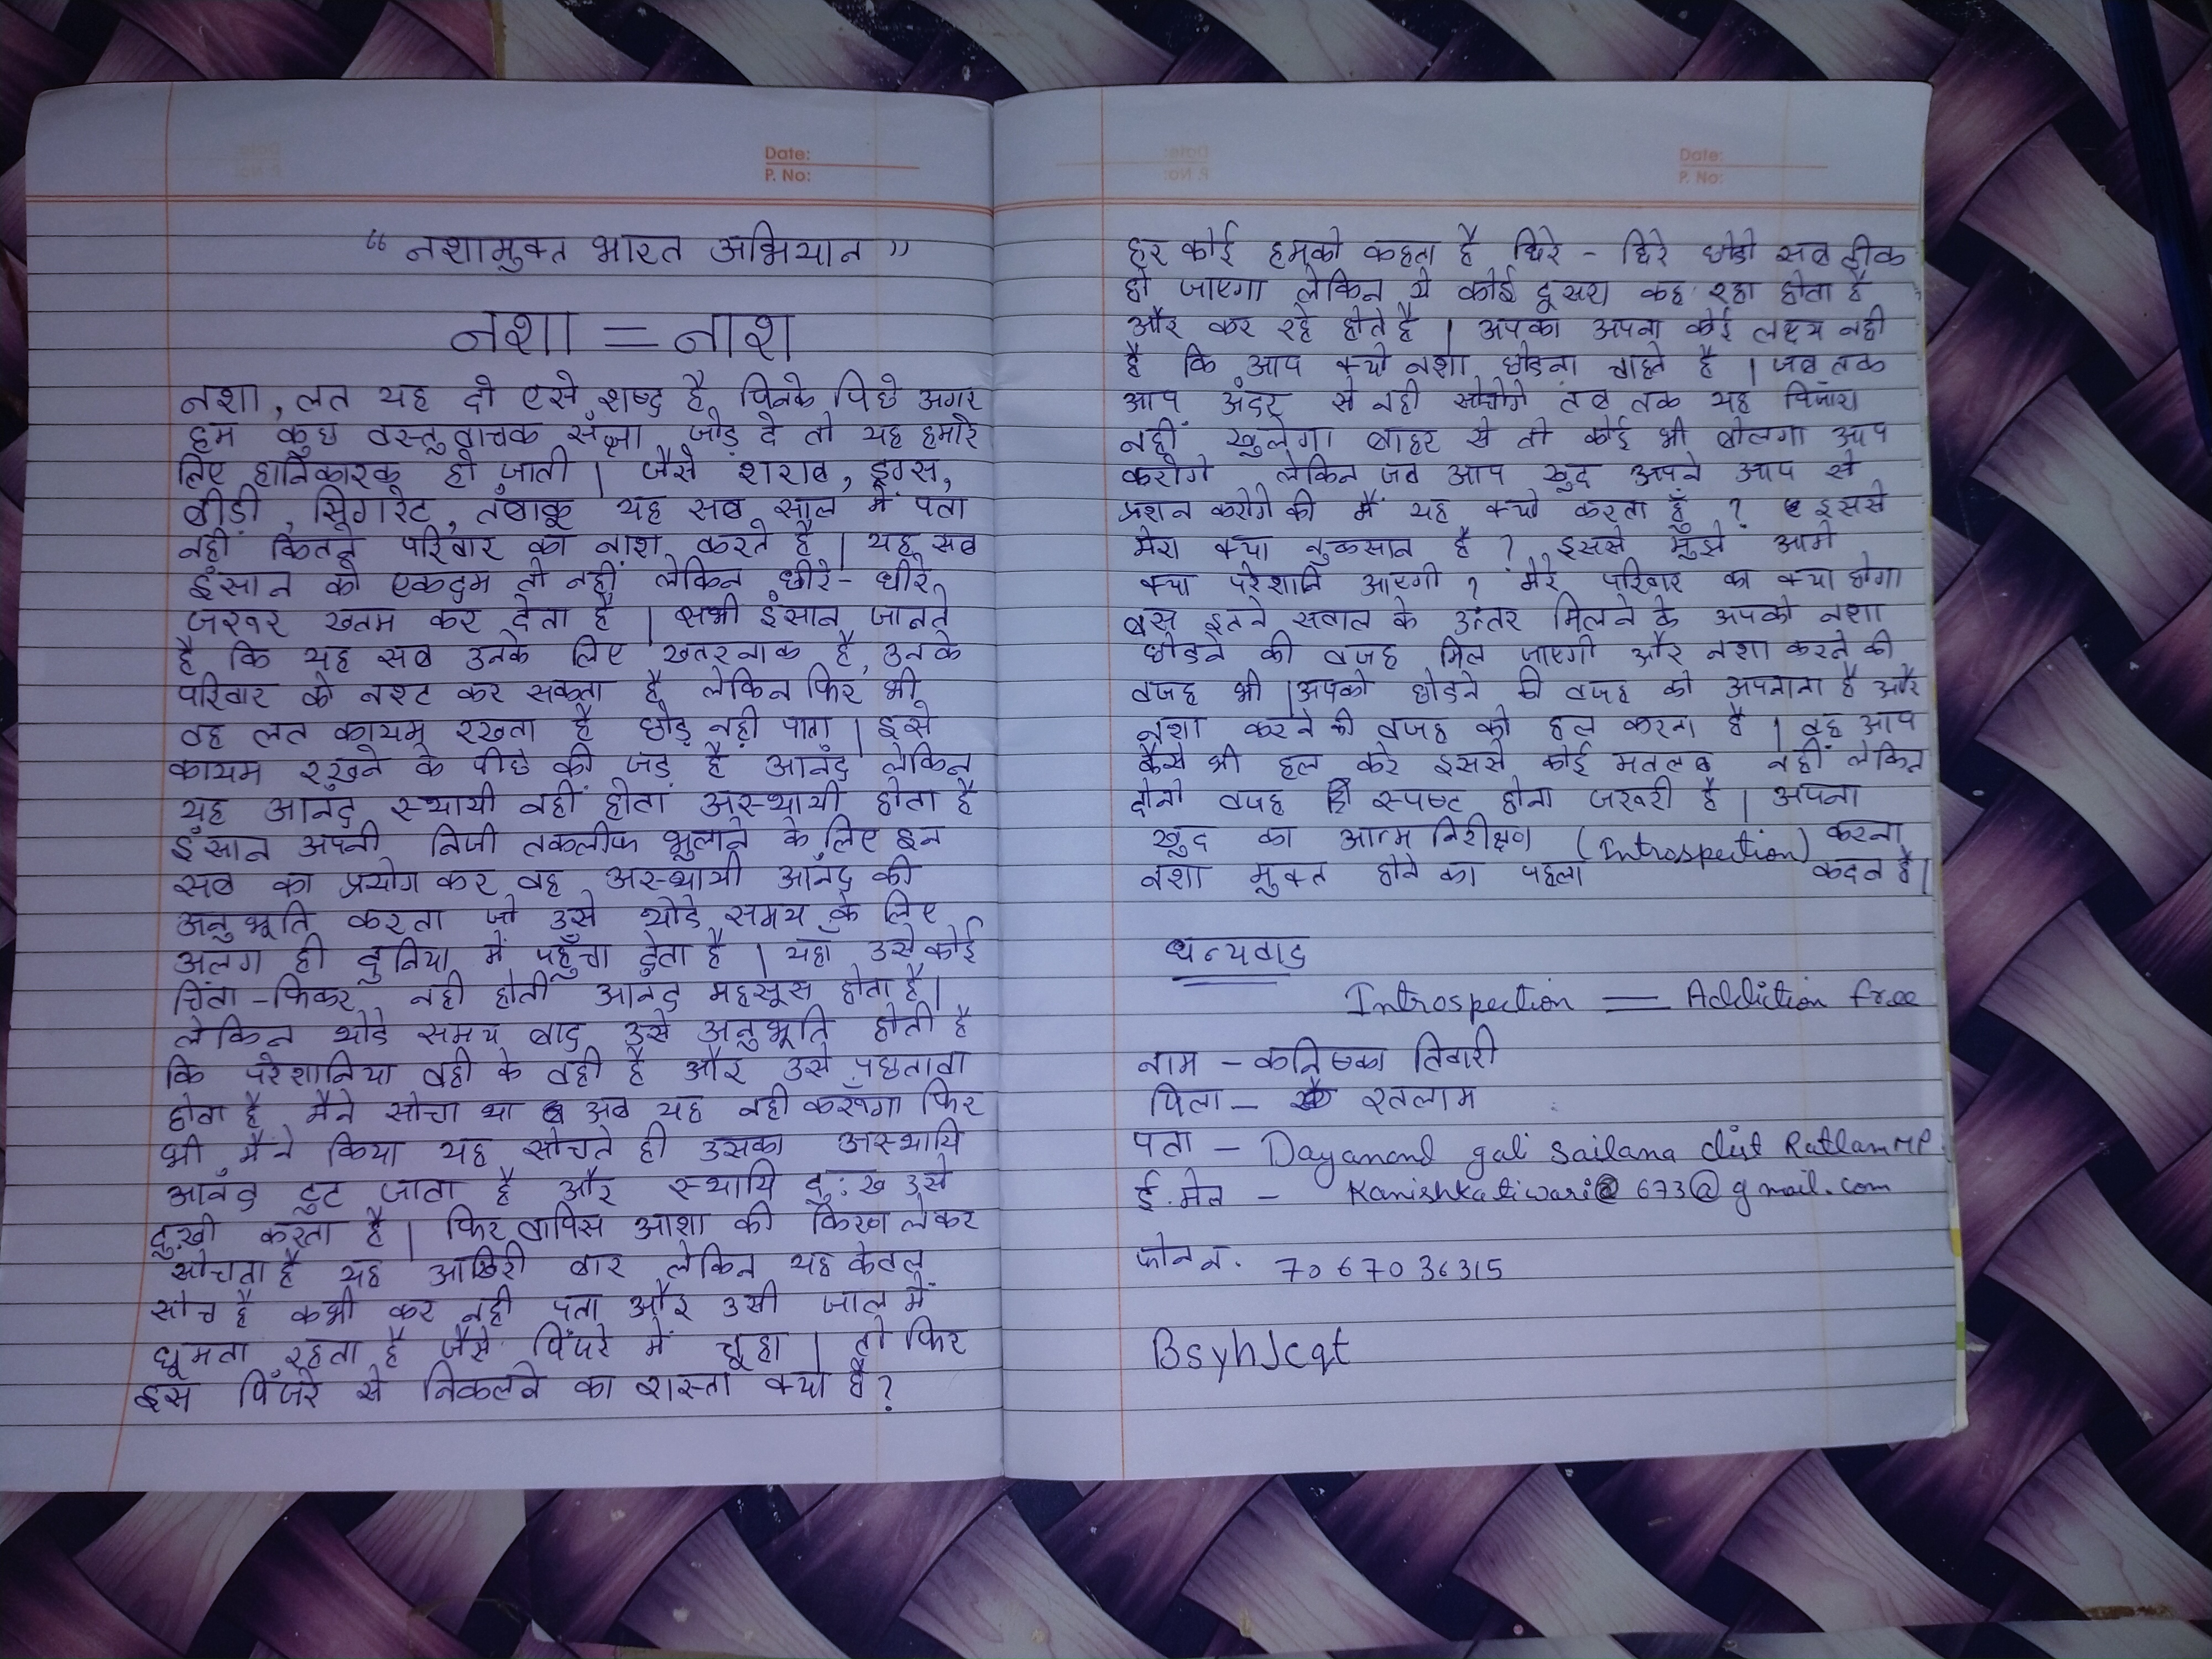 Date:
P. No:
“नशामुक्त भारत अभियान”
नशा = नाश
नशा, लत यह दो एसे शब्द है जिनके पिछे अगर
हम कुछ वस्तुवाचक संज्ञा जोड़ दे तो यह हमारे
लिए हानिकारक हो जाती । जैसे शराब, ड्रग्स,
बीड़ी, सिगरेट, तंबाकू यह सब साल में पता
नहीं कितने परिवार का नाश करते है । यह सब
इंसान को एकदम तो नहीं लेकिन धीरे - धीरे
जरुर खतम कर देता है । सभी इंसान जानते
है कि यह सब उनके लिए खतरनाक है, उनके
परिवार को नश्ट कर सकता है लेकिन फिर भी
वह लत कायम रखता है छोड़ नही पाता । इसे
कायम रखने के पीछे की जड़ है आनंद लेकिन
यह आनंद स्थायी नहीं होता अस्थायी होता है
इंसान अपनी निजी तकलीफ भुलाने के लिए इन
सब का प्रयोग कर वह अस्थायी आनंद की
अनुभूति करता जो उसे थोडे समय के लिए
अलग ही दुनिया में पहुँचा देता है । यहा उसे कोई
चिंता - फिकर नही होती आनंद महसूस होता है।
लेकिन थोडे समय बाद उसे अनुभूति होती है
कि परेशानिया वही के वही है और उसे पछतावा
होता है मैने सोचा था अब यह नही करूँगा फिर
भी मैने किया यह सोचते ही उसका अस्थायि
आनंद टुट जाता है और स्थायि दु:ख उसे
दु:खी करता है । फिर वापिस आशा की किरण लेकर
सोचता है यह आखिरी बार लेकिन यह केवल
सोच है कभी कर नही पता और उसी जाल में
घूमता रहता है जैसे पिंजरे में चूहा । तो फिर
इस पिंजरे से निकलने का रास्ता क्या है?
Date:
P. No:
हर कोई हमको कहता है धिरे - धिरे छोडो सब ठीक
हो जाएगा लेकिन ये कोई दूसरा कह रहा होता है
और कर रहे होते है । अपका अपना कोई लक्ष्य नही
है कि आप क्यो नशा छोडना चाहते है । जब तक
आप अंदर से नही सोचोगे तब तक यह पिंजरा
नहीं खुलेगा बाहर से तो कोई भी बोलगा आप
करोगे लेकिन जब आप खुद अपने आप से
प्रशन करोगे की मैं यह क्यो करता हूँ ? इससे
मेरा क्या नुकसान है ? इससे मुझे आगे
क्या परेशानि आएगी ? मेरे परिवार का क्या होगा
बस इतने सवाल के उत्तर मिलने के अपको नशा
छोडने की वजह मिल जाएगी और नशा करने की
वजह भी । अपको छोडने की वजह को अपनाना है और
नशा करने की वजह को हल करना है । वह आप
कैसे भी हल करे इससे कोई मतलब नहीं लेकिन
दोनो वजह स्पष्ट होना जरूरी है । अपना
खुद का आत्म निरीक्षण (Introspection) करना
नशा मुक्त होने का पहला कदम है।
धन्यवाद
Introspection = Addiction free
नाम - कनिष्का तिवारी
पिता - रतलाम
पता - Dayanand gali Sailana dist Ratlam MP
ई.मेल - Kanishkatiwari@673@gmail.com
फोन न. 7067036315
BsyhJcqt